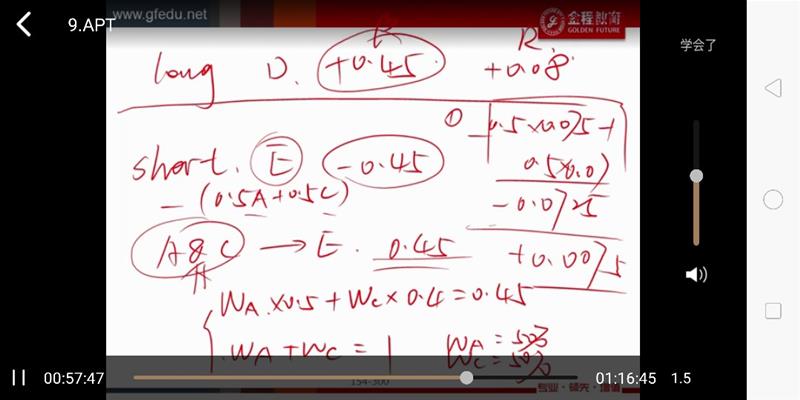 www.gfedu.net
金程教育
GOLDEN FUTURE
9.APT
学会了
β R.
long D. +0.45 +0.08
① -0.5×0.075+
0.5×0.07
short. E -0.45
-(0.5A+0.5C)
-0.0725
A & C → E. 0.45
+0.0075
WA×0.5+WC×0.4=0.45
WA+WC=1
WA=50%
WC=50%
00:57:47
01:16:45
1.5
154-300
专业·领先·增值